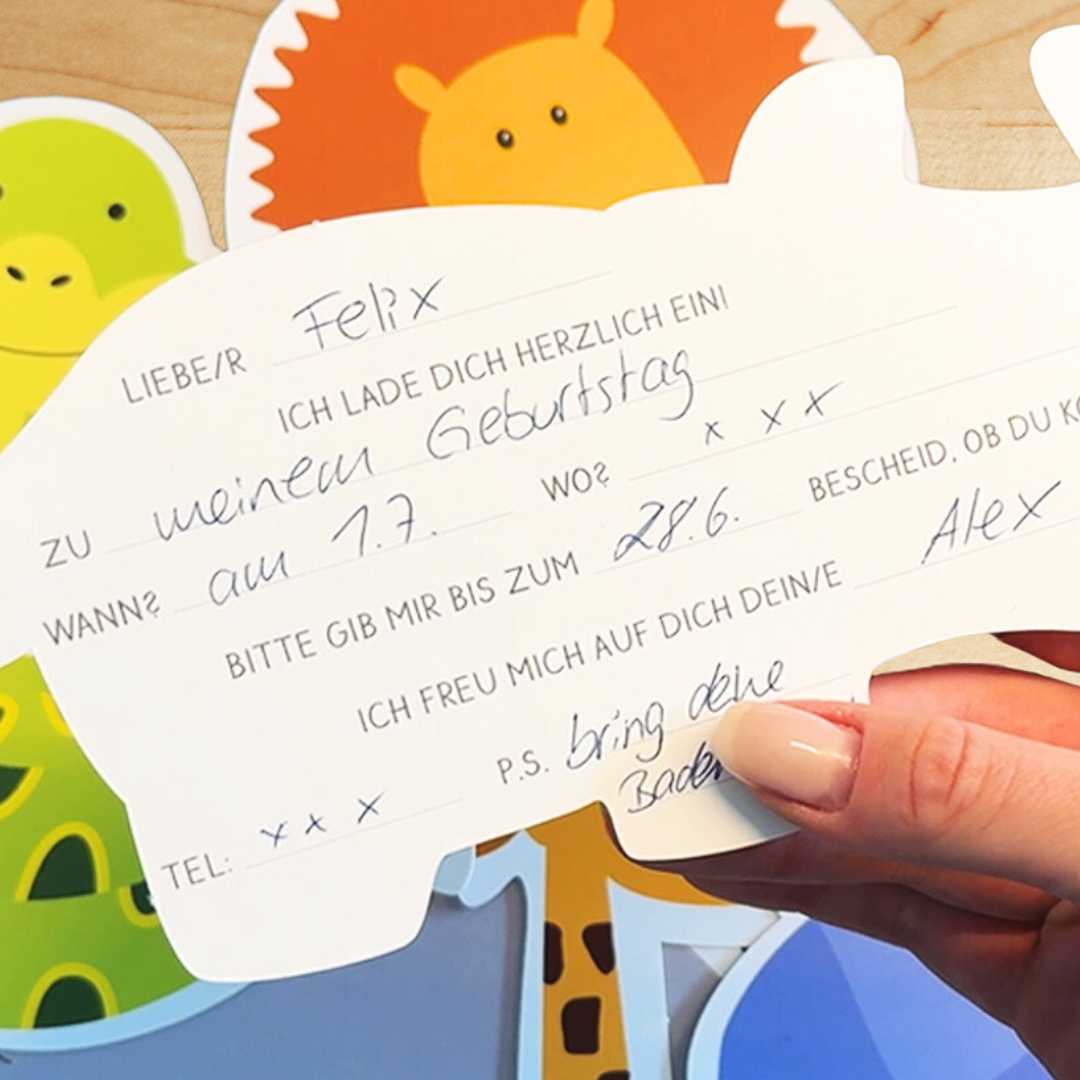 LIEBE/R Felix
ICH LADE DICH HERZLICH EIN!
ZU meinem Geburtstag
WANN? am 1.7. WO? x x x
BITTE GIB MIR BIS ZUM 28.6. BESCHEID, OB DU
ICH FREU MICH AUF DICH DEIN/E Alex
P.S. bring deine
TEL: x x x